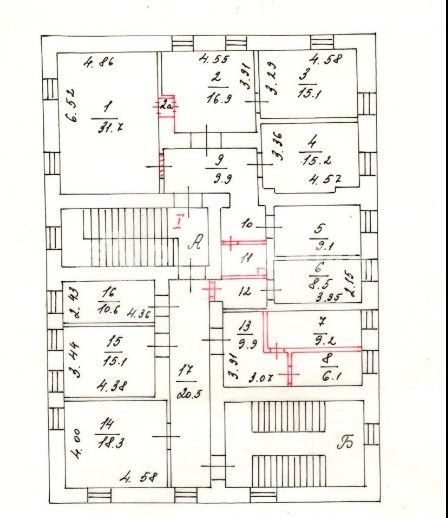 4.86
6.52
1
31.7
4.55
2
16.9
3.91
2а
3.29
4.58
3
15.1
3.36
4
15.2
4.57
9
9.9
I
А
10
5
9.1
11
6
8.5
3.95
2.15
12
2.43
16
10.6
4.36
3.44
15
15.1
4.38
17
20.5
13
9.9
3.91
3.07
7
9.2
8
6.1
4.00
14
18.3
4.58
Б